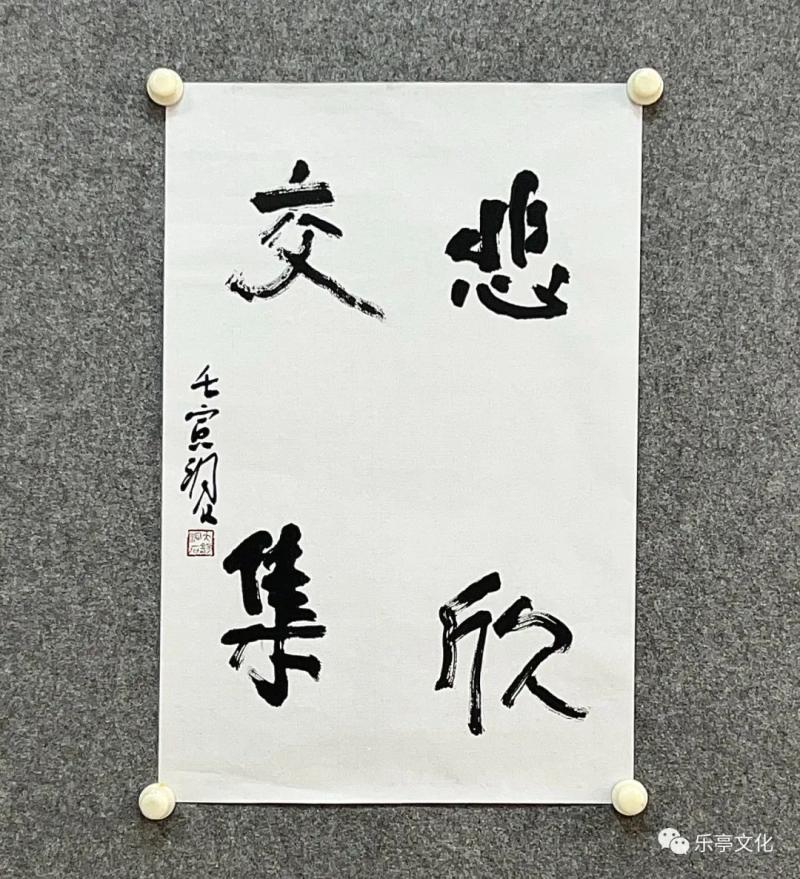 悲欣
交集
壬寅
乐亭文化